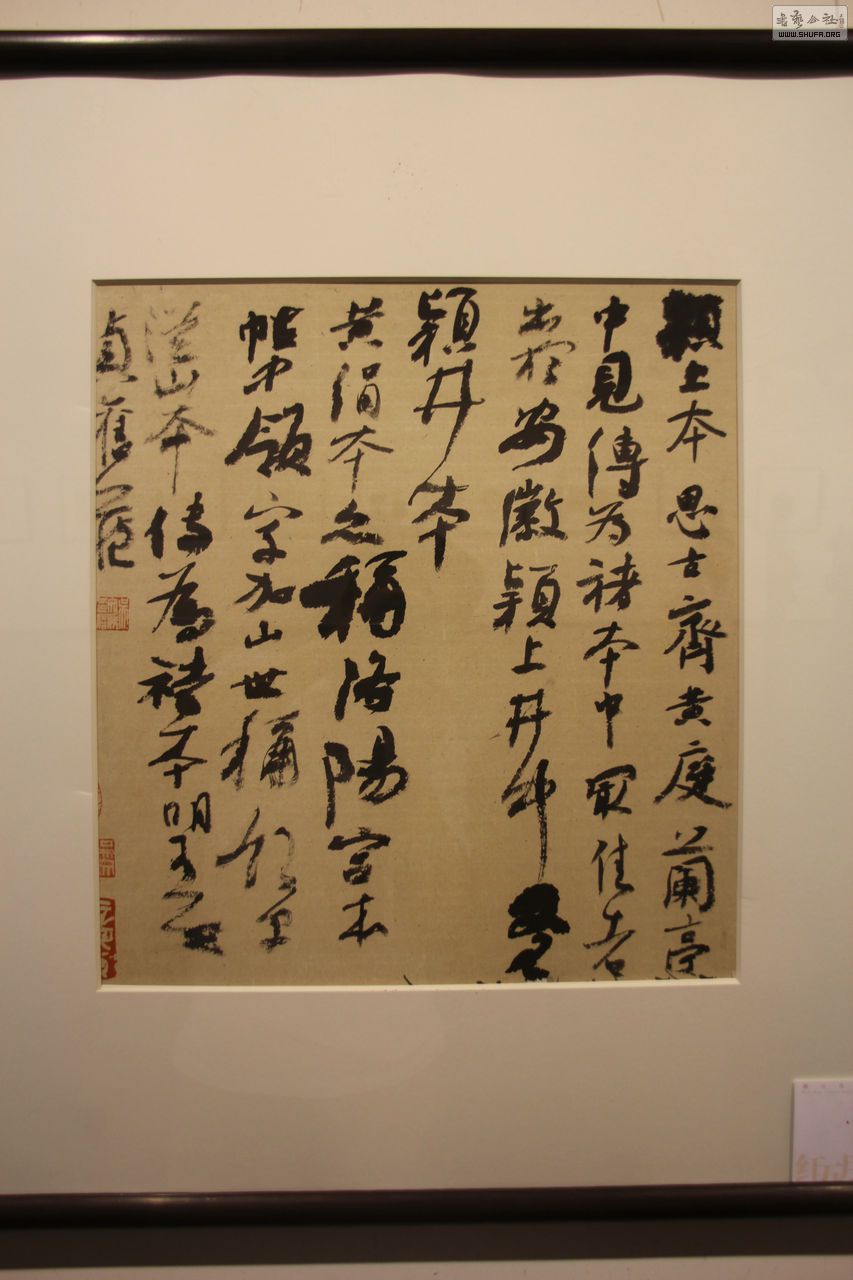 潁上本思古齋黄庭蘭亭
中見傳為褚本中最佳者
出於安徽潁上井中
潁井本
黄絹本之稱洛陽宮本
帖中領字加山世稱領字
從山本傳為褚本明
貞舊藏
書藝公社
WWW.SHUFA.ORG